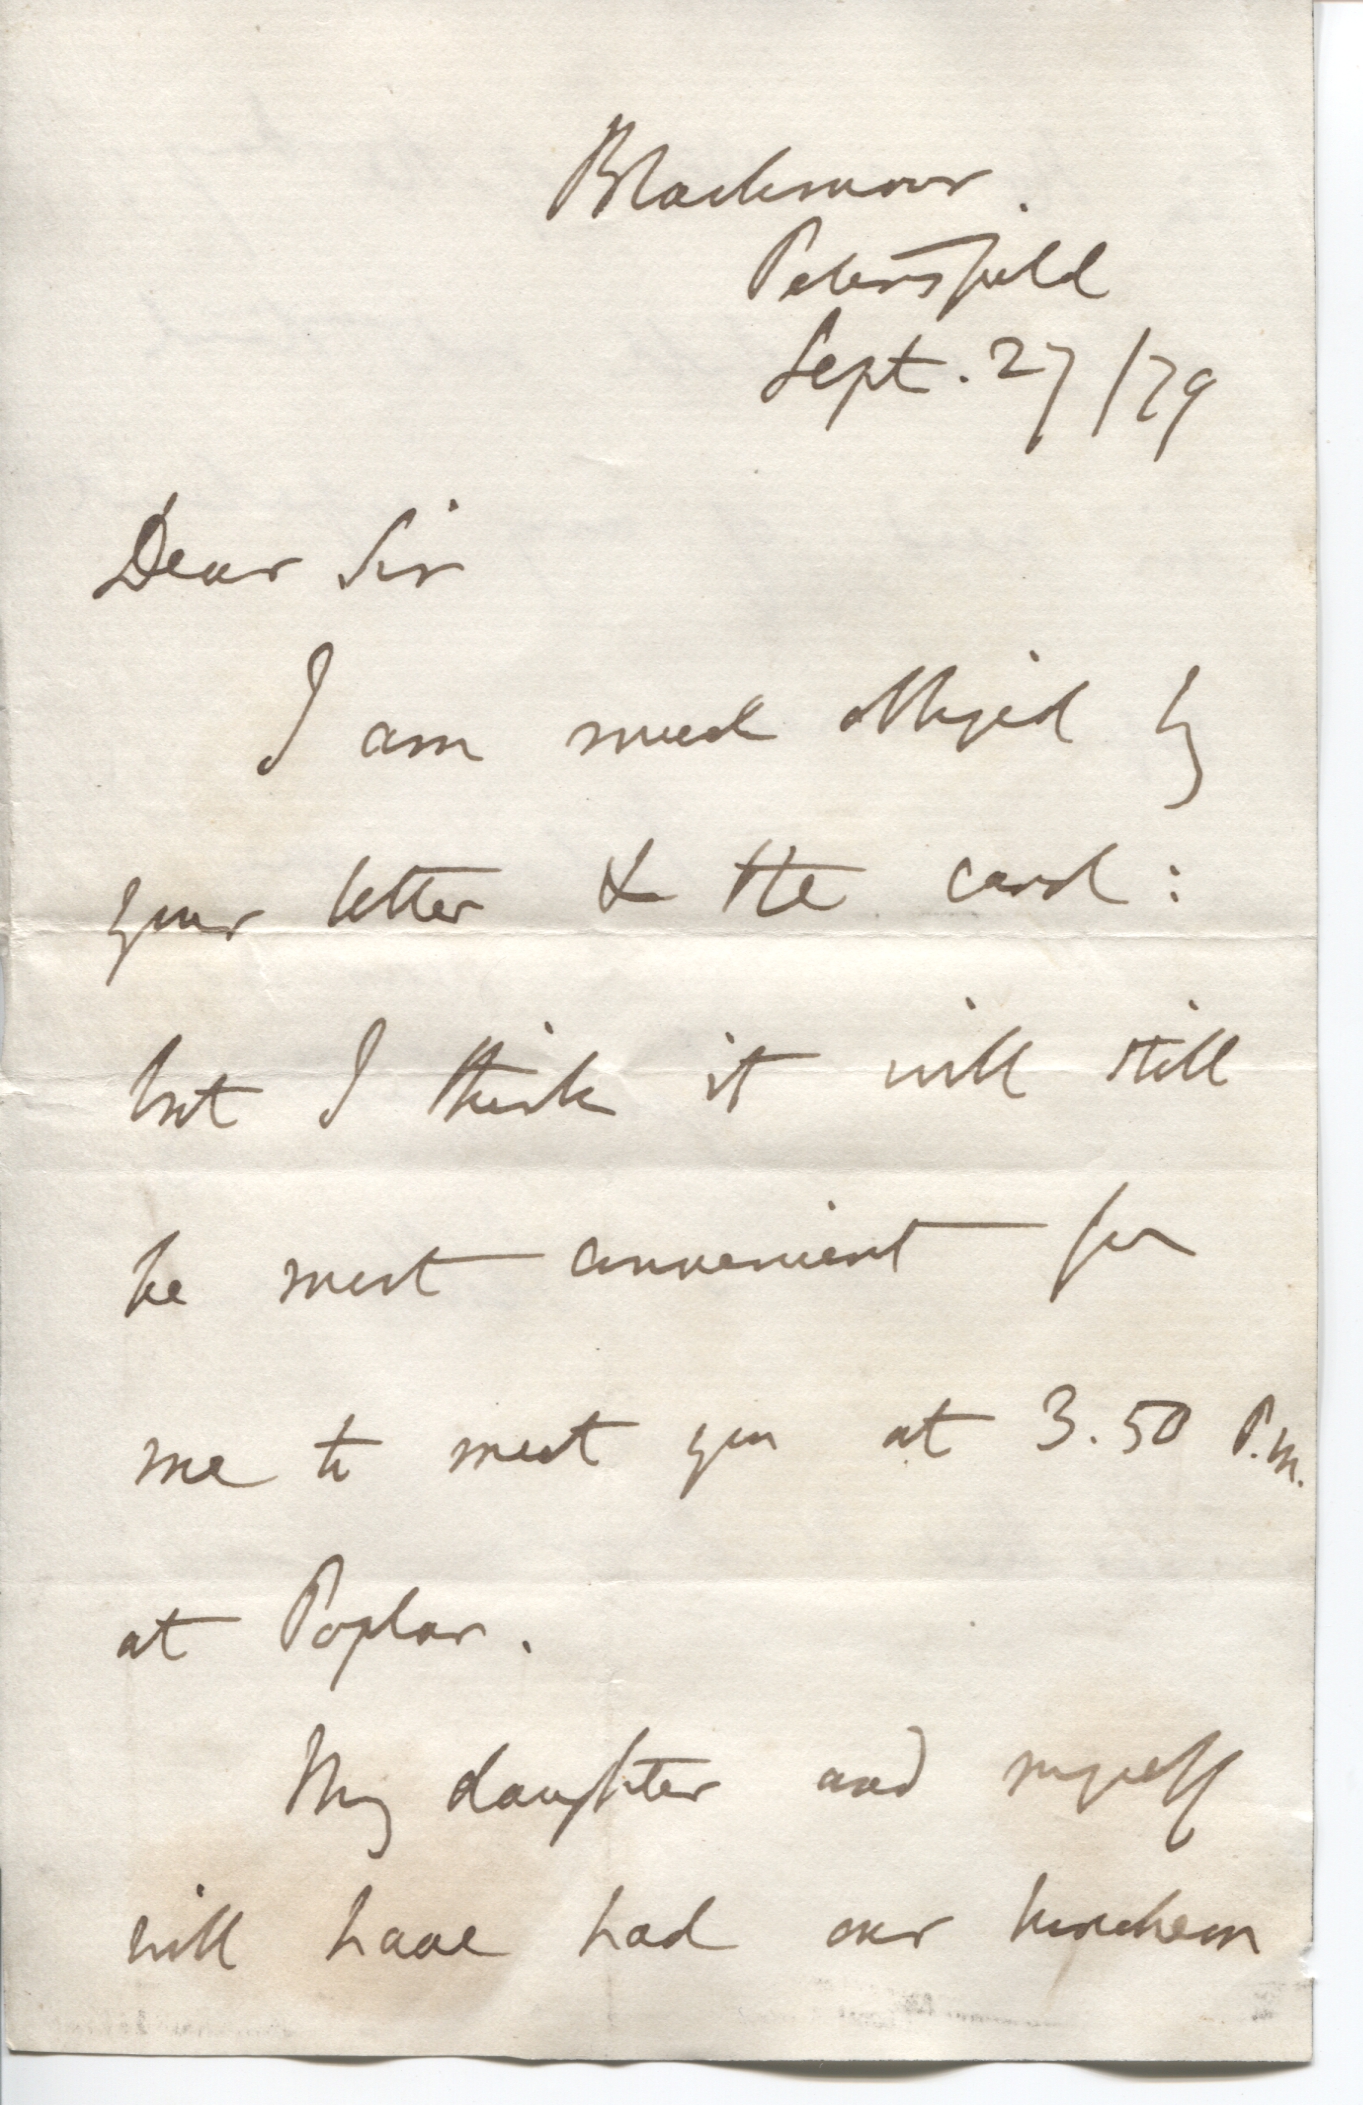 Blackmoor.
Petersfield
Sept. 27/79
Dear Sir
I am much obliged by
your letter & the card:
but I think it will still
be most convenient for
me to meet you at 3.50 P.M.
at Poplar.
My daughter and myself
will have had our luncheon